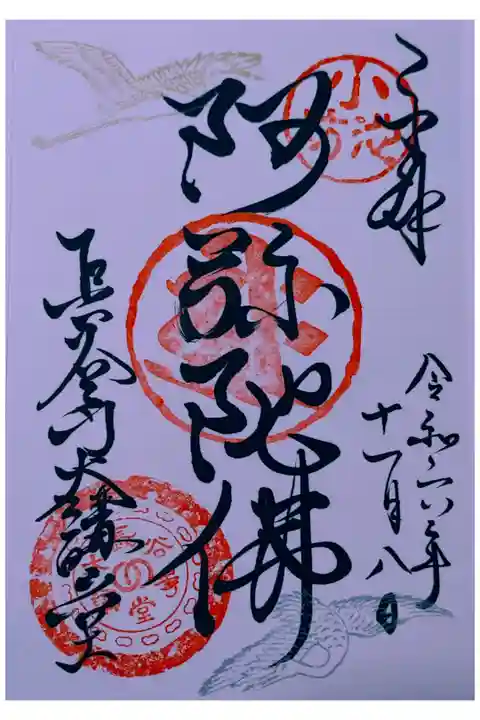 奉拝
令和六年
十一月八日
阿弥陀佛
長谷寺大講堂
小池坊